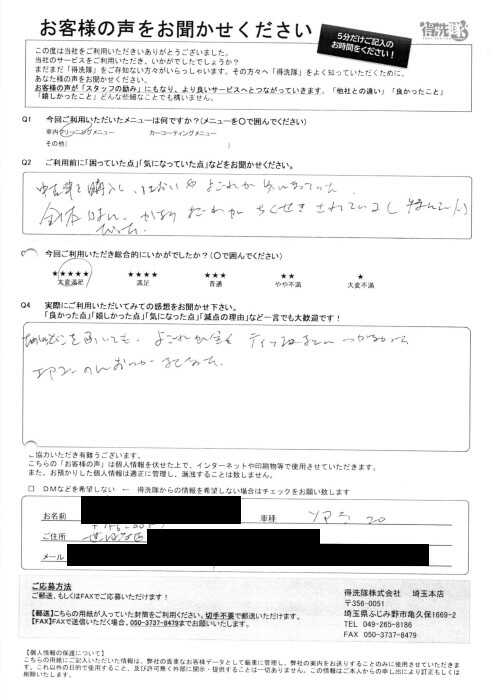 お客様の声をお聞かせください
5分だけご記入の
お時間をください!
得洗隊
この度は当社をご利用いただきありがとうございました。
当社のサービスをご利用いただき、いかがでしたでしょうか?
まだまだ「得洗隊」をご存知ない方々がいらっしゃいます。その方々へ「得洗隊」をよく知っていただくために、
あなた様の声をお聞かせください。
お客様の声が「スタッフの励み」にもなり、より良いサービスへとつながっていきます。「他社との違い」「良かったこと」
「嬉しかったこと」どんな些細なことでも構いません。
Q1 今回ご利用いただいたメニューは何ですか?(メニューを○で囲んでください)
車内クリーニングメニュー カーコーティングメニュー
その他( )
Q2 ご利用前に「困っていた点」「気になっていた点」などをお聞かせください。
中古車を購入し、においや よごれが
全体 かなり よごれが ちくせきされているし
今回ご利用いただき総合的にいかがでしたか?(○で囲んでください)
★★★★★ ★★★★ ★★★ ★★ ★
大変満足 満足 普通 やや不満 大変不満
Q4 実際にご利用いただいてみての感想をお聞かせ下さい。
「良かった点」「嬉しかった点」「気になった点」「減点の理由」など一言でも大歓迎です!
よごれが
ご協力いただき有難うございます。
こちらの「お客様の声」は個人情報を伏せた上で、インターネットや印刷物等で使用させていただきます。
また、お預かりした個人情報は適正に管理し、漏洩することは致しません。
□ DMなどを希望しない ← 得洗隊からの情報を希望しない場合はチェックをお願い致します
お名前 車種 ソアラ 20
ご住所
メール
ご応募方法
ご郵送、もしくはFAXでご応募いただけます!
【郵送】こちらの用紙が入っていた封筒をご利用ください。切手不要で郵送いただけます。
【FAX】FAXで送信いただく場合、050-3737-8479までお願いいたします。
得洗隊株式会社 埼玉本店
〒356-0051
埼玉県ふじみ野市亀久保1669-2
TEL 049-265-8186
FAX 050-3737-8479
【個人情報の保護について】
こちらの用紙にご記入いただいた情報は、弊社の貴重なお客様データとして厳重に管理し、弊社の案内をお送りすることのみに使用させていただきま
す。これ以外の目的で使用すること、及び許可無く外部に開示・提供することは一切ありません。この情報はご本人からの申し出により訂正もしくは
削除いたします。